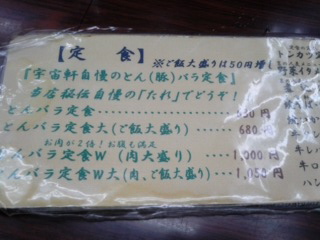 【定食】 ※ご飯大盛りは50円増
『宇宙軒自慢のとん(豚)バラ定食』
当店秘伝自慢の「たれ」でどうぞ！
とんバラ定食
とんバラ定食大(ご飯大盛り) 680円
お肉が2倍！お腹も満足
とんバラ定食W (肉大盛り) 1,000円
とんバラ定食W大(肉、ご飯大盛り) 1,050円
トンカツ
野菜イタ